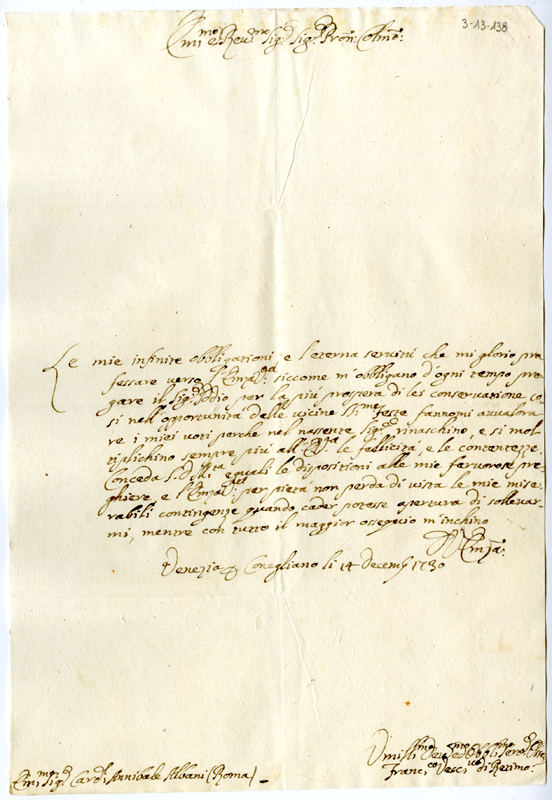 3-13-138
Emi.mo e Reud.mo Sig.r Sig.r Pron: Colmo:
Le mie infinite obbligationi e l'eterna seruitù che mi glorio pro
fessare uerso l'Em.za V.ra siccome m'obbligano d'ogni tempo pre
gare il Sig.r Iddio per la più prospera di lei conseruatione, co
si nell'opportunità delle uicine S.me feste fannomi aualora
re i miei uoti perche nel nascente Sig.r rinaschino, e si mol
tiplichino sempre più all'Em.za V.ra le felicità, e le contentezze.
Conceda S. D. M.tà eguali le dispositioni alle mie feruorose pre
ghiere, e l'Em.za V.ra per pietà non perda di uista le mie mise
rabili contingenze quando cader potesse apertura di solleuar
mi, mentre con tutto il maggior ossequio m'inchino
Di V. Em.za:
Venezia Conegliano li 14 Decem. 1730
Emi.mo Sig.r Card. Annibale Albani (Roma)
Vmiliss.mo Deu.mo ed Obblig.mo Seru.
Franc.co Vesc.uo di Retimo